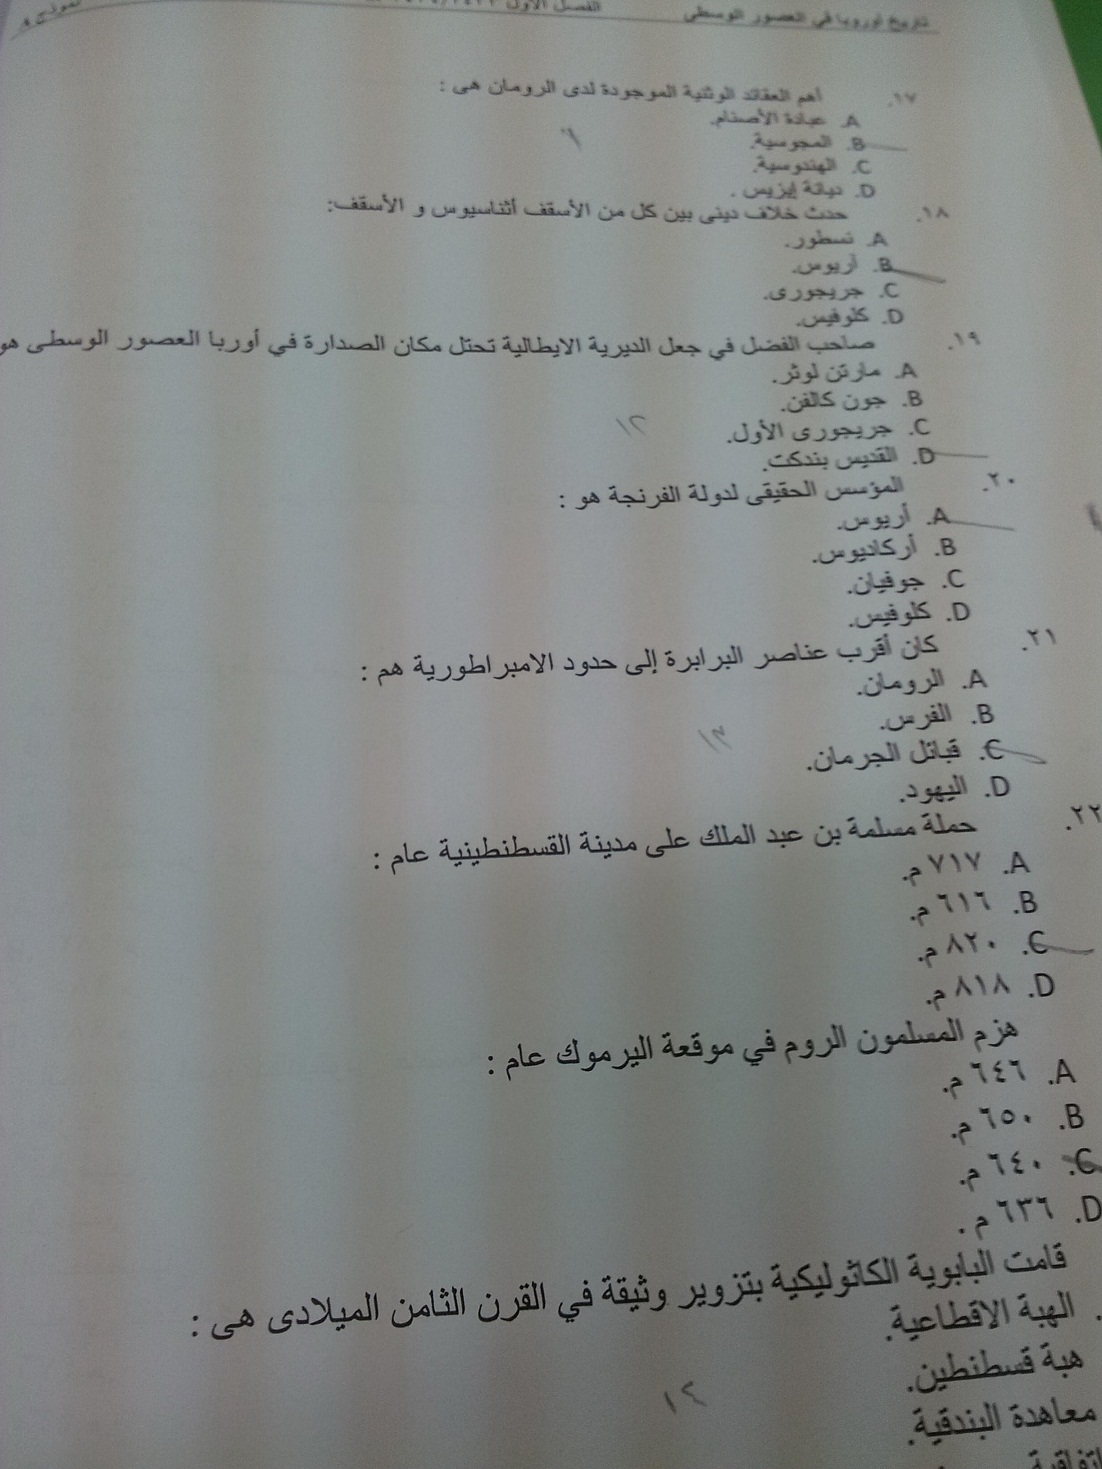 تاريخ أوروبا في العصور الوسطى الفصل الأول نموذج
١٧. أهم العقائد الوثنية الموجودة لدى الرومان هى :
A. عبادة الأصنام.
B. المجوسية.
٦
C. الهندوسية.
D. ديانة إيزيس .
١٨. حدث خلاف دينى بين كل من الأسقف أثناسيوس و الأسقف:
A. نسطور.
B. أريوس.
C. جريجورى.
D. كلوفيس.
١٩. صاحب الفضل في جعل الديرية الايطالية تحتل مكان الصدارة في أوربا العصور الوسطى هو
A. مارتن لوثر.
B. جون كالفن.
١٢
C. جريجورى الأول.
D. القديس بندكت.
٢٠. المؤسس الحقيقى لدولة الفرنجة هو :
A. أريوس.
B. أركاديوس.
C. جوفيان.
D. كلوفيس.
٢١. كان أقرب عناصر البرابرة إلى حدود الامبراطورية هم :
A. الرومان.
B. الفرس.
١٣
C. قبائل الجرمان.
D. اليهود.
٢٢. حملة مسلمة بن عبد الملك على مدينة القسطنطينية عام :
A. ٧١٧ م.
B. ٦١٦ م.
C. ٨٢٠ م.
D. ٨١٨ م.
هزم المسلمون الروم في موقعة اليرموك عام :
A. ٦٤٦ م.
B. ٦٥٠ م.
C. ٦٤٠ م.
D. ٦٣٦ م .
قامت البابوية الكاثوليكية بتزوير وثيقة في القرن الثامن الميلادى هى :
. الهبة الاقطاعية.
هبة قسطنطين.
١٤
معاهدة البندقية.
اتفاقية